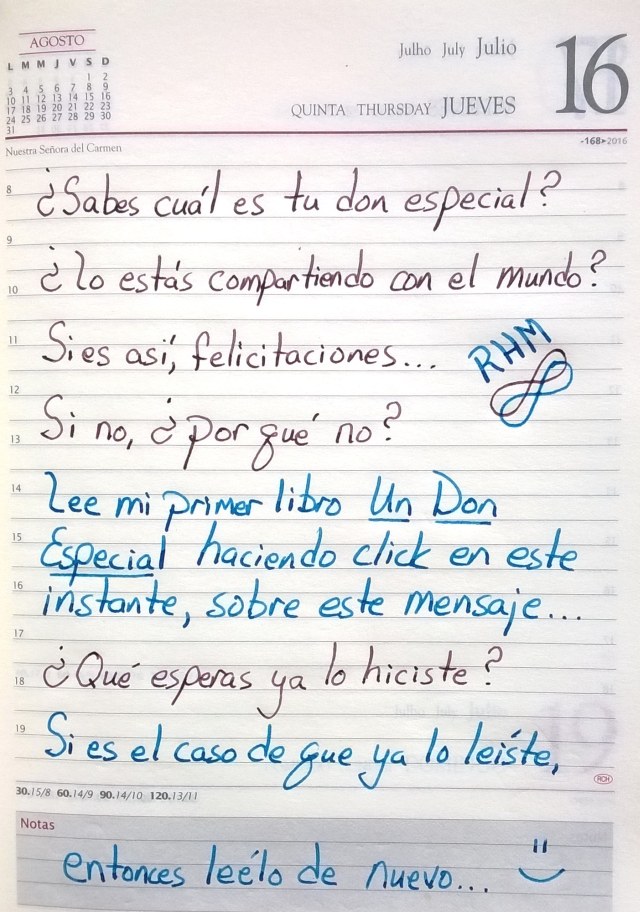 AGOSTO
L M M J V S D
1 2
3 4 5 6 7 8 9
10 11 12 13 14 15 16
17 18 19 20 21 22 23
24 25 26 27 28 29 30
31
Julho July Julio
QUINTA THURSDAY JUEVES
16
Nuestra Señora del Carmen
-168>2016
8 ¿Sabes cuál es tu don especial?
9
10 ¿lo estás compartiendo con el mundo?
11 Si es así, felicitaciones...
RHM
12
13 Si no, ¿por qué no?
14 Lee mi primer libro Un Don
15 Especial haciendo click en este
16 instante, sobre este mensaje...
17
18 ¿Qué esperas ya lo hiciste?
19 Si es el caso de que ya lo leíste,
30.15/8 60.14/9 90.14/10 120.13/11
Notas
entonces leélo de nuevo...